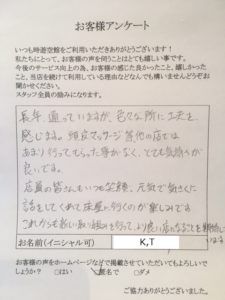 お客様アンケート
いつも時遊空館をご利用いただきありがとうございます！
私たちにとって、お客様の声を伺うことはとても嬉しい事です。
今後のサービス向上の為、お客様の感じた良かったこと、嬉しかった
こと、当店を続けて利用している理由などなんでも構いませんどうぞお
聞かせください。
スタッフ全員の励みになります。
長年通っていますが、色々な所に工夫を
感じます。頭皮マッサージ等他の店では
あまり行ってもらった事がなく、とても気持ちが
良いです。
店員の皆さんもいつも笑顔、元気で気さくに
話をしてくれて床屋に行くのが楽しみです
これからも新しい取り組みを行って、より良い店になることを期待して
います
お名前(イニシャル可)
K,T
お客様の声をホームページなどで掲載させていただいてもよろしいで
しょうか？ □はい □匿名で □ダメ
ご協力ありがとうございました。